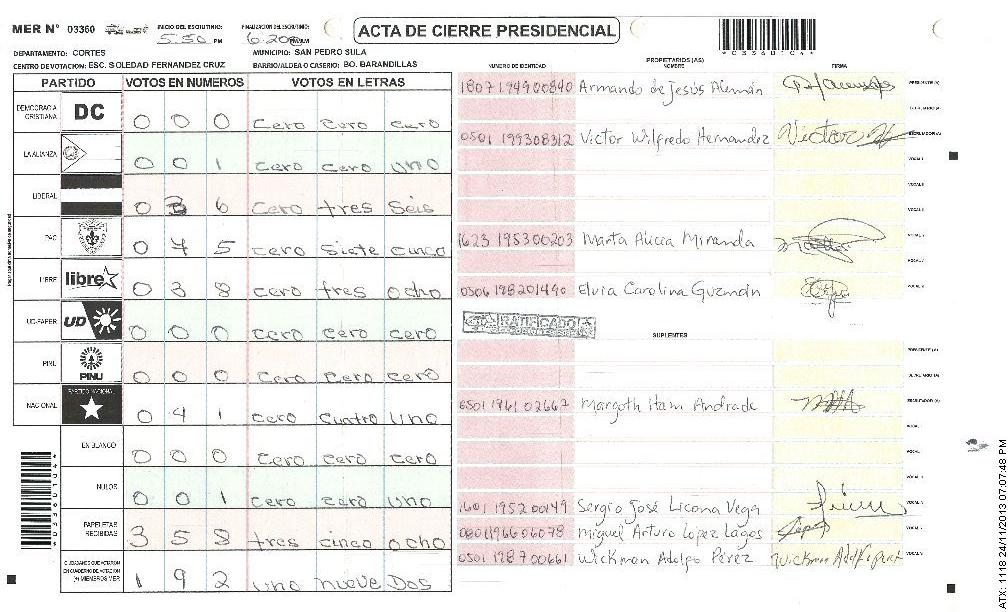 MER N° 03360 INICIO DEL ESCRUTINIO: 5:50 PM FINALIZACION DEL ESCRUTINIO: 6:20 PM
ACTA DE CIERRE PRESIDENCIAL
DEPARTAMENTO: CORTES MUNICIPIO: SAN PEDRO SULA
CENTRO DE VOTACION: ESC. SOLEDAD FERNANDEZ CRUZ BARRIO/ALDEA O CASERIO: BO. BARANDILLAS
PARTIDO VOTOS EN NUMEROS VOTOS EN LETRAS
DEMOCRACIA CRISTIANA DC 0 0 0 cero cero cero
LA ALIANZA 0 0 1 cero cero uno
LIBERAL 0 3 6 cero tres seis
PAC 0 7 5 cero siete cinco
LIBRE libre 0 3 8 cero tres ocho
UD-FAPER UD 0 0 0 cero cero cero
PINU PINU 0 0 0 cero cero cero
NACIONAL PARTIDO NACIONAL 0 4 1 cero cuatro uno
EN BLANCO 0 0 0 cero cero cero
NULOS 0 0 1 cero cero uno
PAPELETAS RECIBIDAS 3 5 8 tres cinco ocho
CIUDADANOS QUE VOTARON EN CUADERNO DE VOTACION (+) MIEMBROS MER 1 9 2 uno nueve Dos
NUMERO DE IDENTIDAD PROPIETARIOS (AS) NOMBRE FIRMA
1807 194900840 Armando de Jesús Alemán PRESIDENTE (A)
SECRETARIO (A)
0501 199308312 Victor Wilfredo Hernandez Victor ESCRUTADOR (A)
VOCAL
VOCAL
VOCAL
1623 195300203 Marta Alicia Miranda VOCAL
VOCAL
0506 198201490 Elvia Carolina Guzmán VOCAL
RATIFICADO
SUPLENTES
PRESIDENTE (A)
SECRETARIO (A)
0501 1961 02662 Margoth Ham Andrade ESCRUTADOR (A)
VOCAL
VOCAL
VOCAL
1601 1952 00149 Sergio José Licona Vega VOCAL
0801196606078 Miguel Arturo Lopez Lagos VOCAL
0501 198700661 Wickman Adolfo Pérez VOCAL
ATX: 1118 24/11/2013 07:07:48 PM